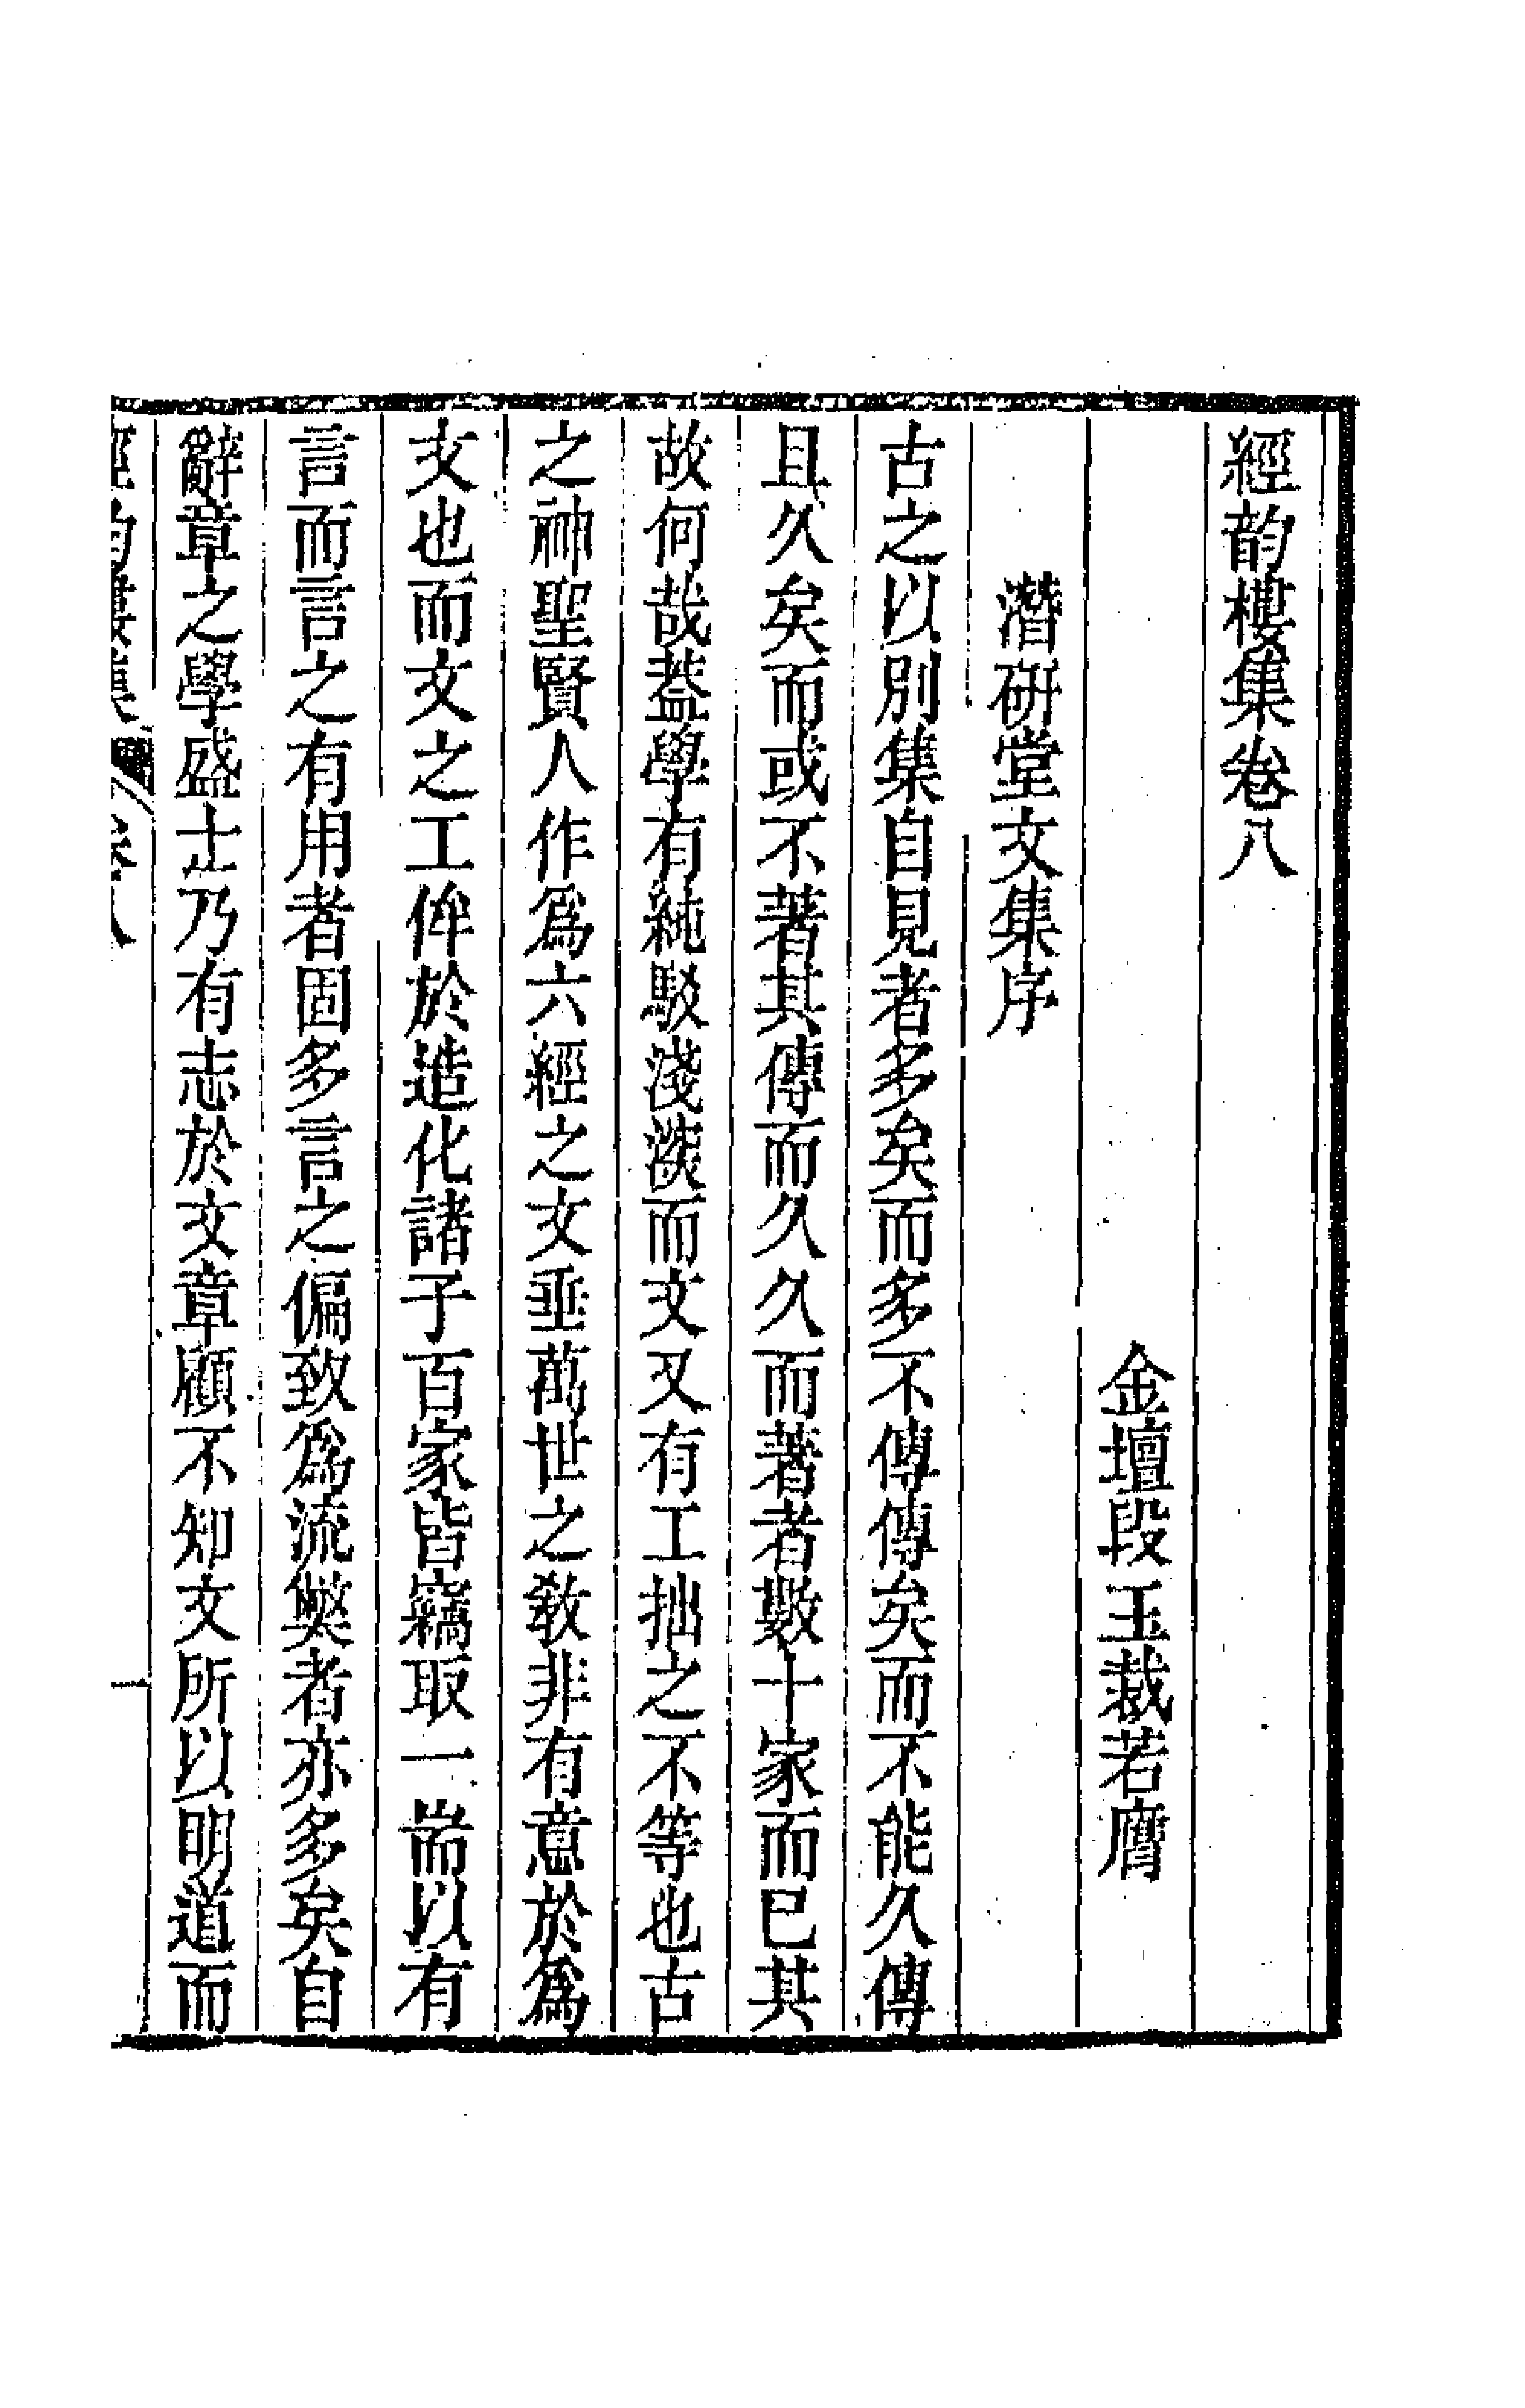 經韵樓集卷八
金壇段玉裁若膺
潛硏堂文集序
古之以別集自見者多矣而多不傳傳矣而不能久傳
且久矣而或不著其傳而久久而著者數十家而已其
故何哉葢學有純駁淺深而文又有工拙之不等也古
之神聖賢人作爲六經之文垂萬世之敎非有意於爲
文也而文之工侔於造化諸子百家皆竊取一耑以有
言而言之有用者固多言之偏致爲流獘者亦多矣自
辭章之學盛士乃有志於文章顧不知文所以明道而
經韵樓集 卷八 一